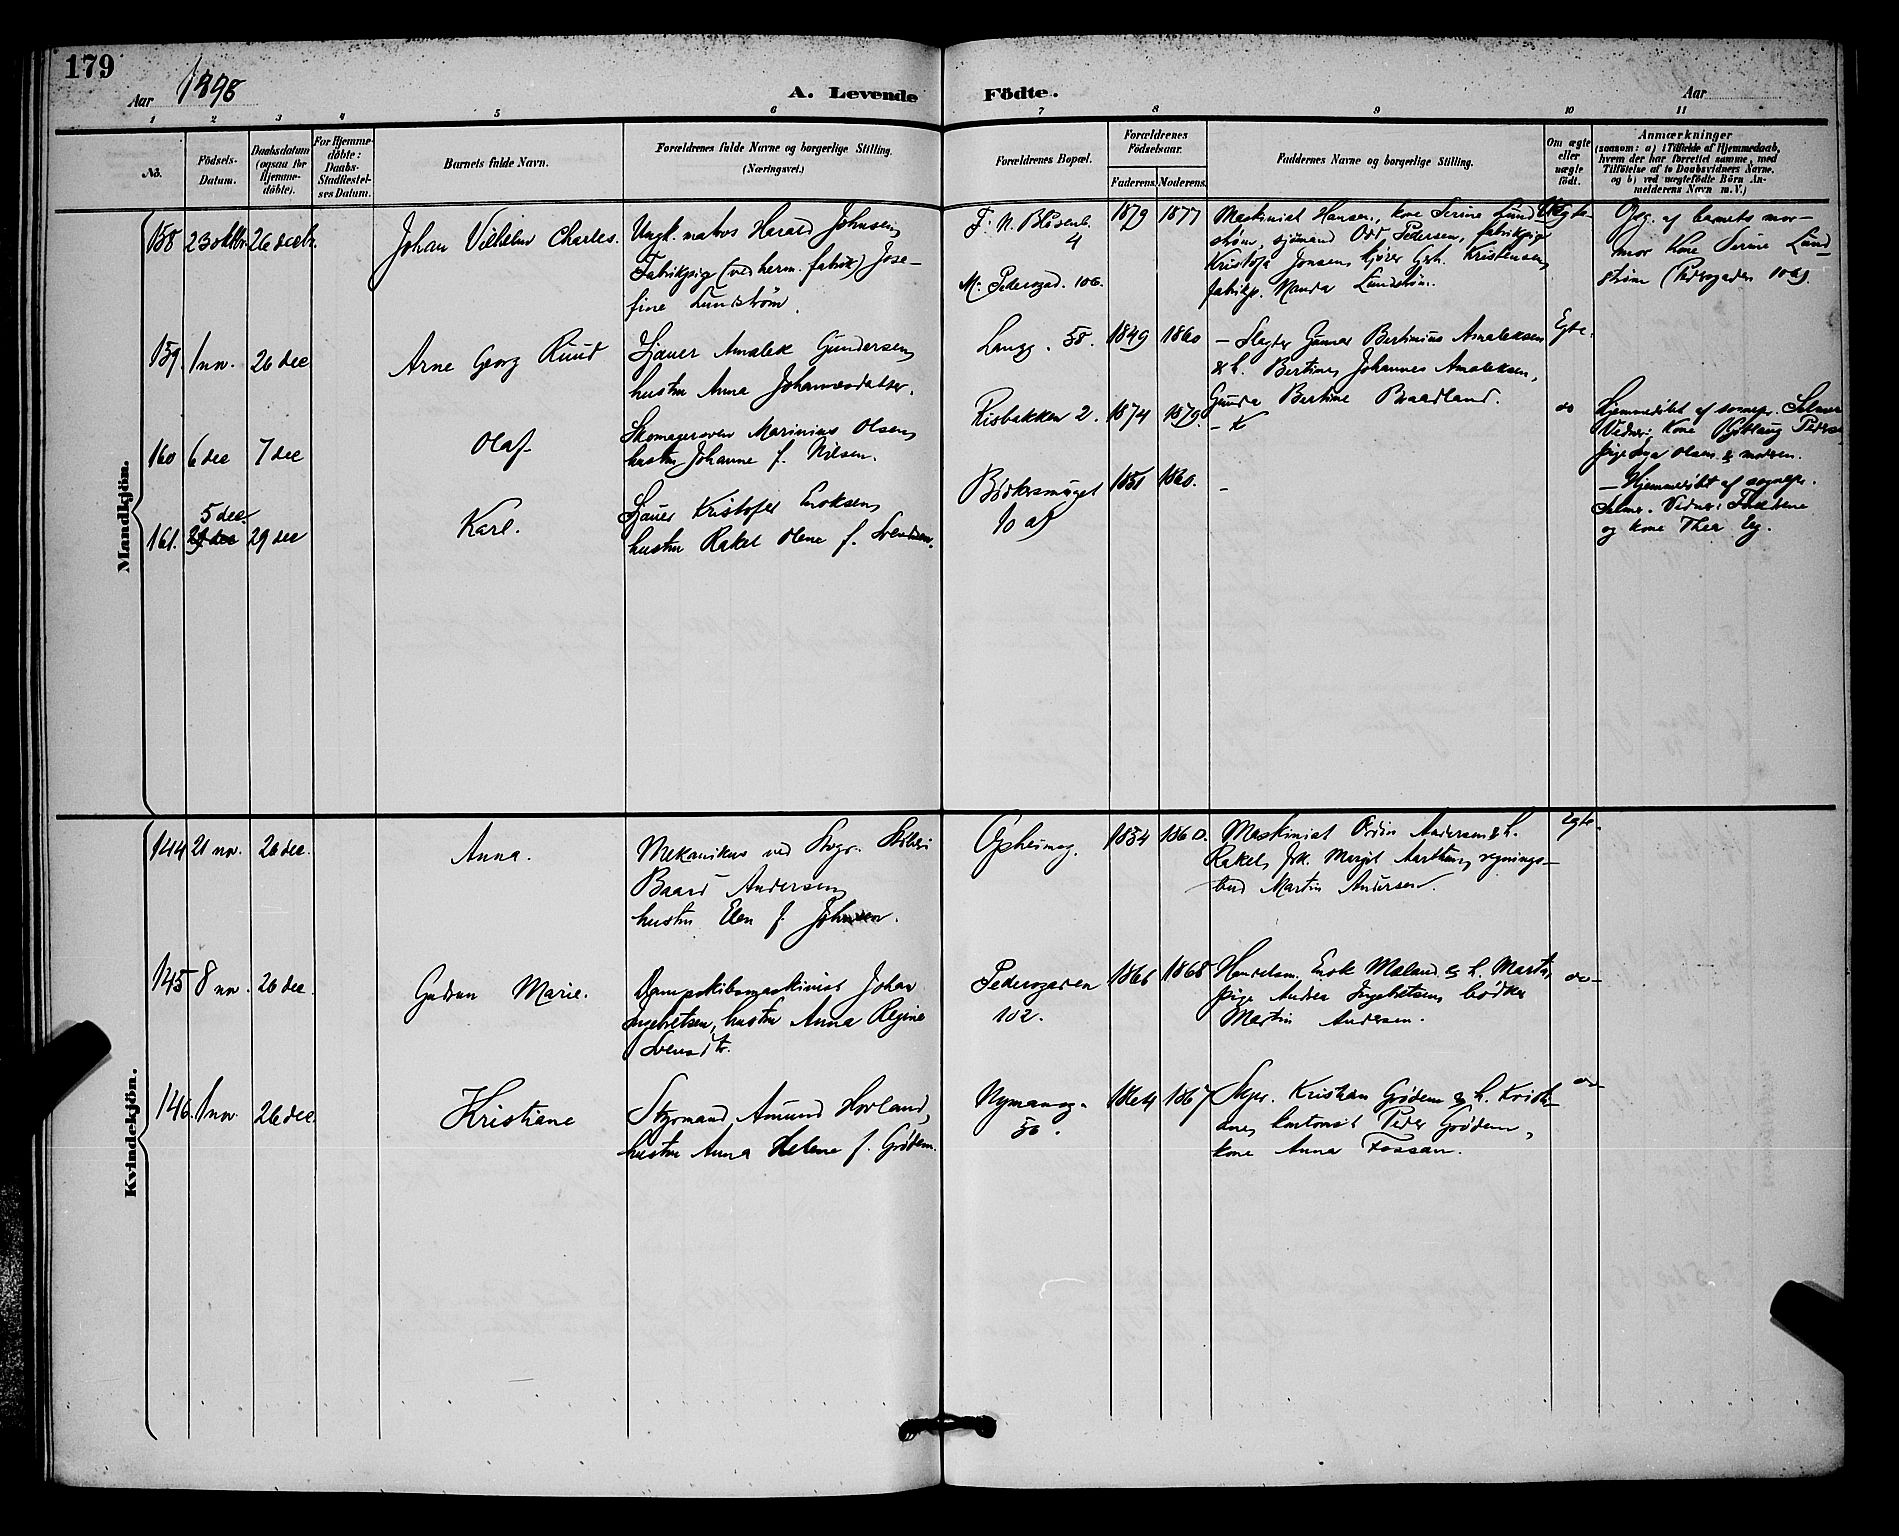 179
Aar 1898
A. Levende
Födte.
Aar
1 2 3 4 5 6 7 8 9 10 11
No.
Födsels-
Datum.
Daabsdatum
(ogsaa for
Hjemme-
döbte).
For Hjemme-
döbte:
Daabs-
Stadfæstel-
ses Datum.
Barnets fulde Navn.
Forældrenes fulde Navne og borgerlige Stilling.
(Næringsvei.)
Forældrenes Bopæl.
Forældrenes
Födselsaar.
Faderens. Moderens.
Faddernes Navne og borgerlige Stilling.
Om ægte
eller
uægte
født.
Anmærkninger
(saasom: a) i Tilfælde af Hjemmedaab,
hvem der har forrettet samme, med
Tilföielse af to Daabsvidners Navne,
og b) ved uægtefödte Börn An-
melderens Navn m. V.)
Mandkjön.
158 23 oktbr 26 decbr.
Johan Vilhelm Charles.
Ungk. matros Harald Johnsen,
Fabrikpige (ved herm. fabrik) Jose-
fine Lundström.
F: N. Blåsenb.
4
M: Pedersgad. 106.
1879 1877
Maskinist Hansen, kone Serine Lund-
ström, sjömand Odd Pedersen, fabrikpige
Kristofa Jonsen, kjörer Grh. Kristensen,
fabrikp. Manda Lundström.
Uegte
Opg. af barnets mor-
mor kone Serine Lund-
ström (Pedersgaden 106).
159. 1 nov. 26 dec
Arne Georg Ruud
Sjauer Amalek Gundersen,
hustru Anna Johannesdatter.
Langg. 58.
1849 1860
- Slagter Gunnar Bertinius Amaleksen
& h. Bertine, Johannes Amaleksen,
Gunda Bertine Braadland.
Egte.
160 6 dec 7 dec
Olaf
Skomagersven Marinius Olsen,
hustru Johanne f. Nilsen.
Risbakken 2.
1874 1879.
do
Hjemmedöbt af sognepr. Selmer
Vidner: kone Pedersen
pige Olsen & modren.
161. 5 dec. 29 dec 29 dec
Karl.
Sjauer Kristofer Enoksen,
hustru Rakel Olene f. Svendsen.
Bödkersmuget
10 a)
1851 1860.
-
- Hjemmedöbt af sognepr.
Selmer. Vidner: Faderne
og kone Thea Eeg.
Kvindekjön.
144 21 nov. 26 dec.
Anna.
Mekanikus ved Stvgr. Stöberi
Baard Andersen,
hustru Elen f. Johnsen.
Opheimsg.
1854 1860.
Maskinist Ordin Andersen & h.
Rakel, frk. Margit Aarthun, regnings-
bud Martin Andersen.
egte.
145 8 nov. 26 dec.
Gudrun Marie.
Dampskibsmaskinist Johan
Ingebretsen, hustru Anna Regine
Svensdtr.
Pedersgaden
102.
1866 1868
Handelsm. Enok Maland & h. Marta,
pige Andrea Ingebretsen, bödker
Martin Andersen.
do-
146. 1 nov. 26 dec.
Kristiane
Styrmand Amund Hovland,
hustru Anna Helene f. Grödem.
Nymansg.
50.
1864 1867
Skpr. Kristian Grödem & h. Kristi-
ane, kontorist Peder Grödem,
kone Anna Fossan.
do-